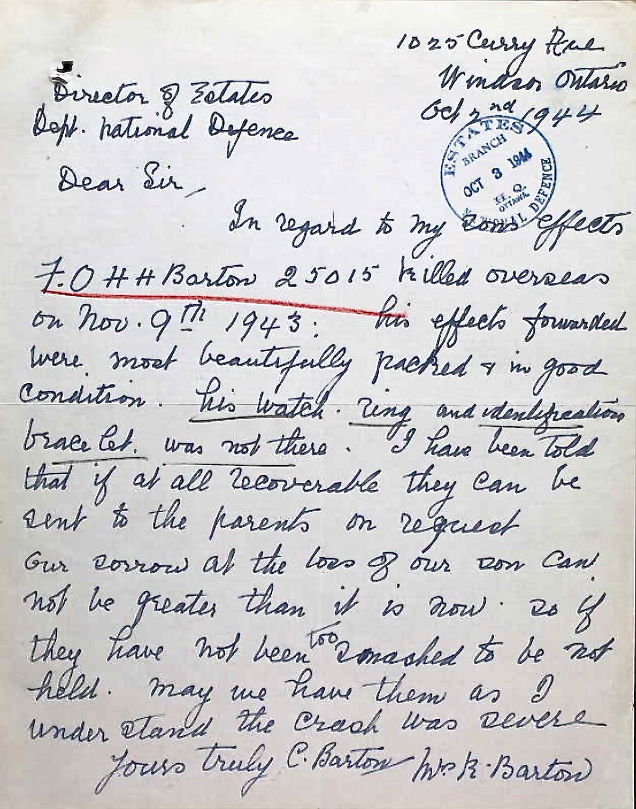 1025 Curry Ave
Windsor Ontario
Oct 2nd 1944
Director of Estates
Dept. National Defence
ESTATES
BRANCH
OCT 3 1944
H.Q.
OTTAWA
NATIONAL DEFENCE
Dear Sir,
In regard to my sons effects
F.O H H Barton 25015 killed overseas
on Nov. 9th 1943. his effects forwarded
were most beautifully packed & in good
condition. his watch. ring and identification
bracelet. was not there. I have been told
that if at all recoverable they can be
sent to the parents on request
our sorrow at the loss of our son can
not be greater than it is now. so if
they have not been too smashed to be not
held. may we have them as I
understand the crash was severe
Yours truly C. Barton Mrs K. Barton